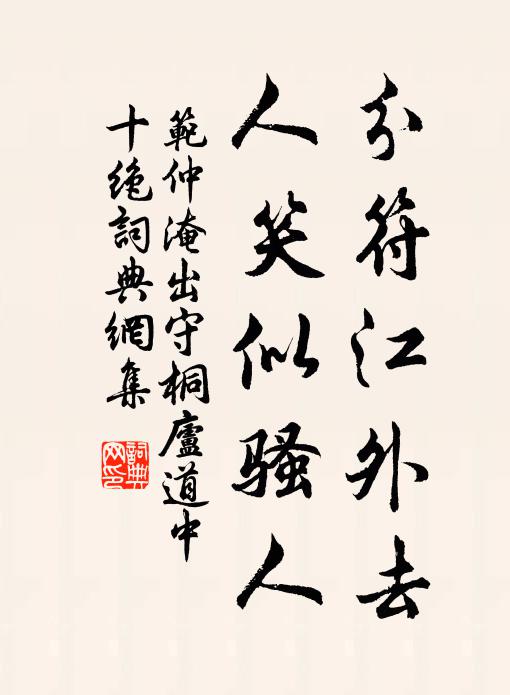 分符江外去
人笑似骚人
範仲淹出守桐廬道中
十绝詞典網集
詞典
网印